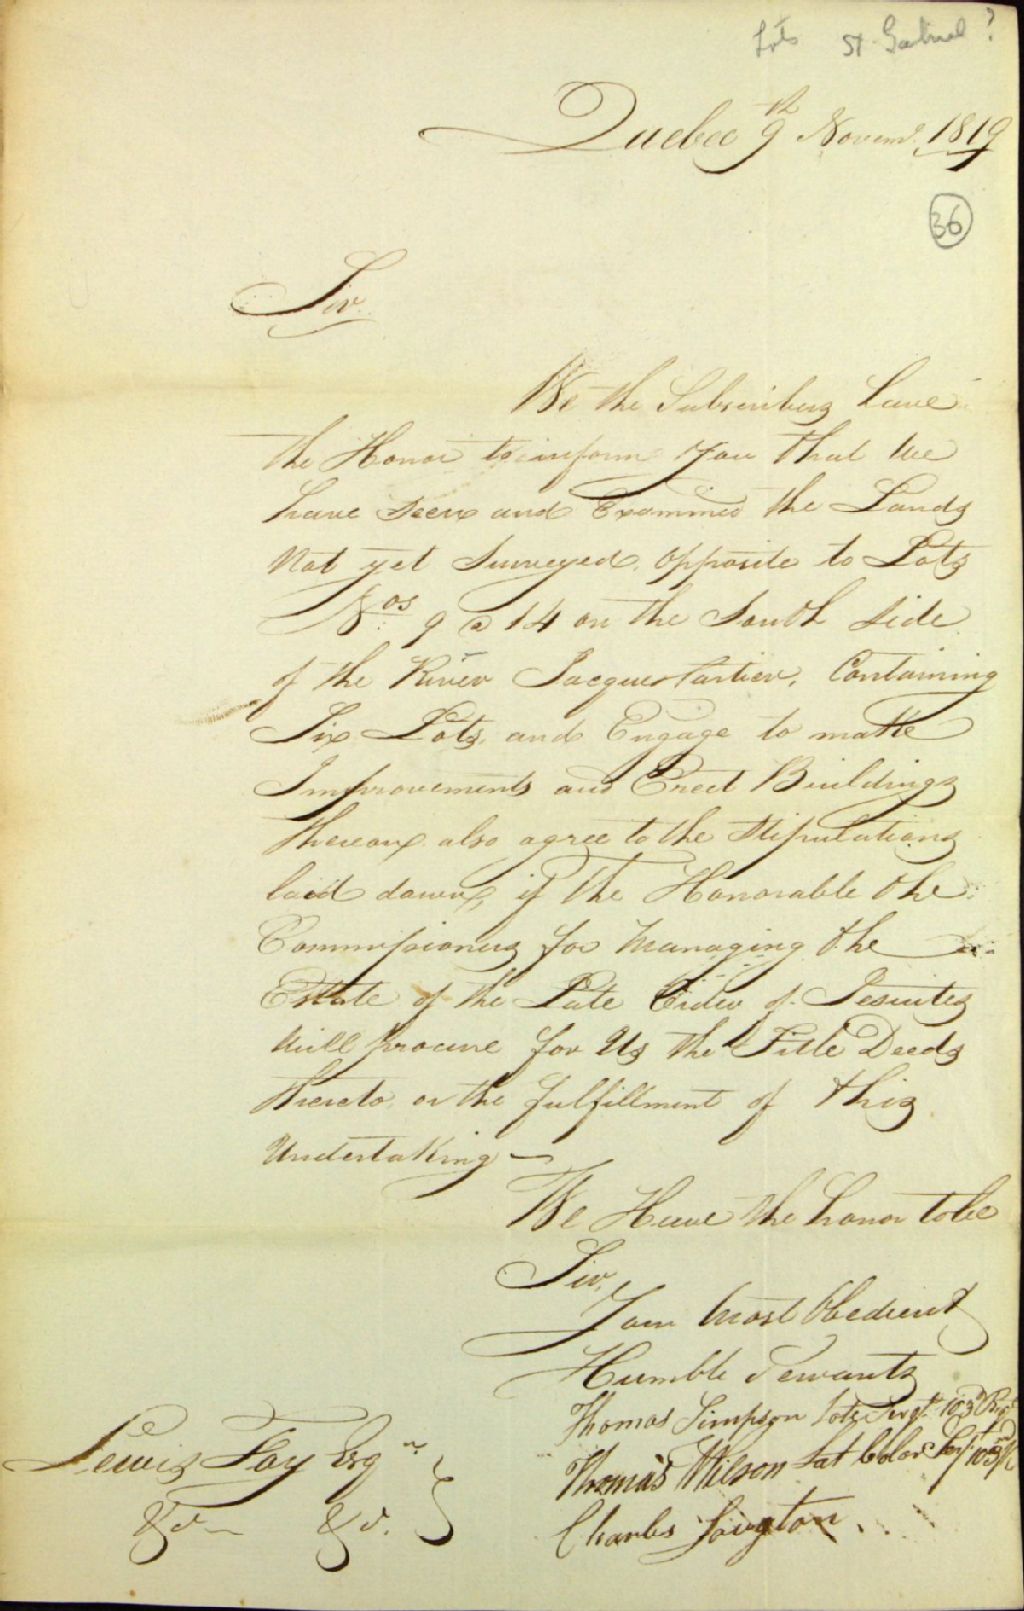 Lots St. Gabriel?
Quebec 9th Novemr. 1819
36
Sir
We the Subscribers have
the Honor to inform You that we
have Seen and Examined the Lands
Not yet Surveyed, opposite to Lots
Nos 9 a 14 on the South Side
of the River Jacques Cartier, Containing
Six Lots, and Engage to make
Improvements and Erect Buildings
thereon, also agree to the Stipulations
laid down, if the Honorable the
Commissioners for Managing the
Estate of the Late Order of Jesuites
Will procure for Us the Title Deeds
thereto, or the fulfillment of this
Undertaking —
We Have the honor to be
Sir,
Your Most Obedient
Humble Servants
Thomas Simpson late Sergt. 103d Regt
Thomas Wilson Lat Color Sert 103d R
Charles
Lewis Foy Esqr
&c &c.